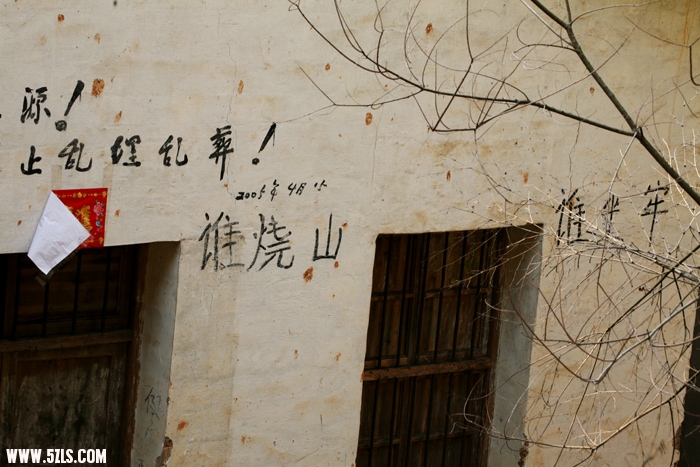 源!
止乱埋乱葬!
2005年4月15
谁烧山
谁坐牢
WWW.5ZLS.COM